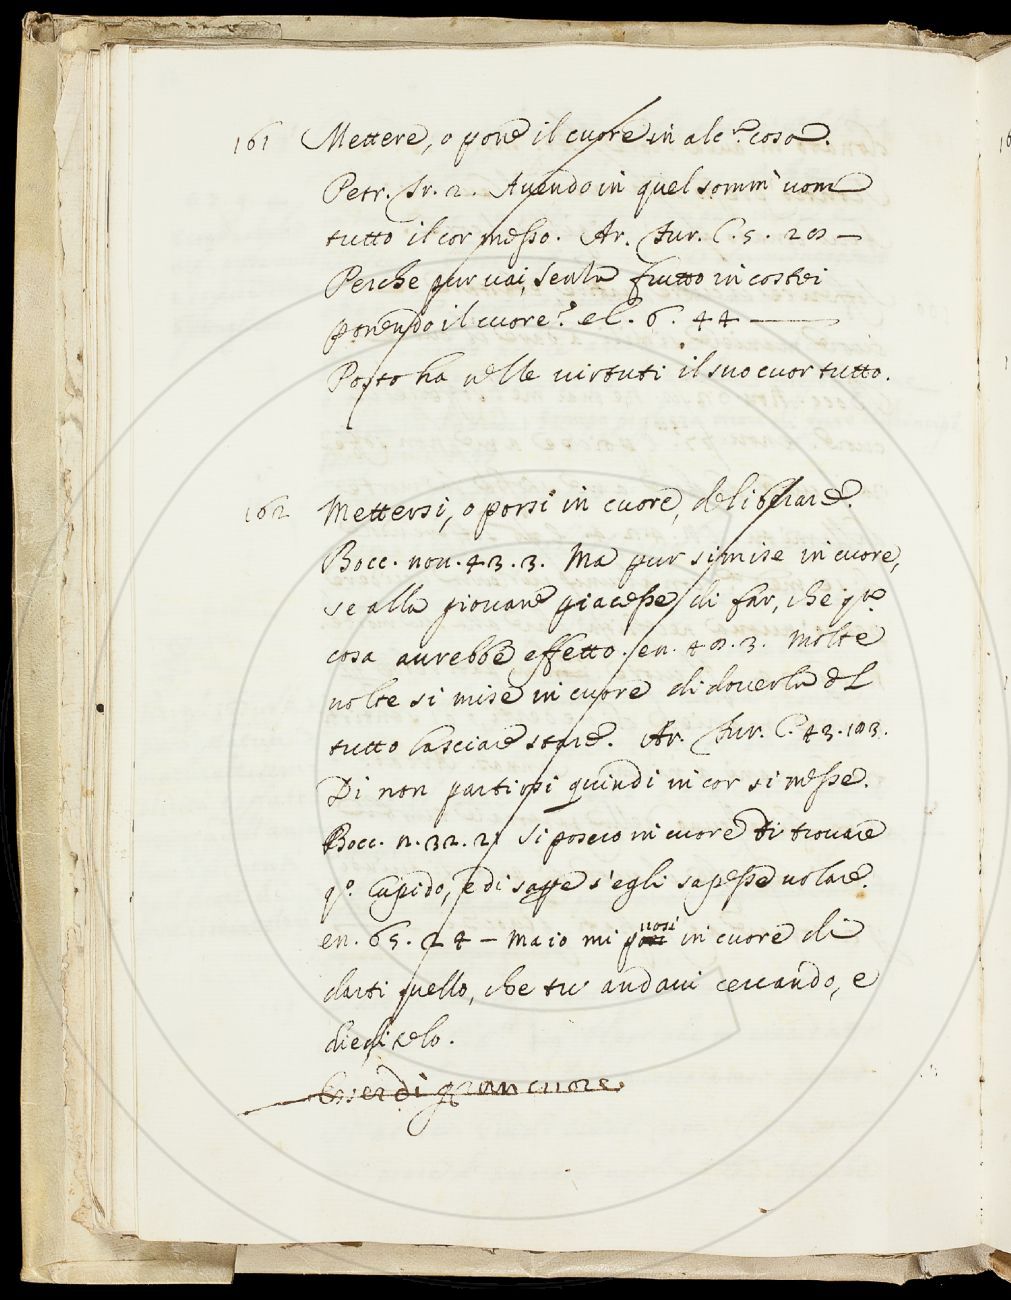 161 Mettere, o porre il cuore in alc.a cosa.
Petr. Tr. 2. Avendo in quel somm' uom
tutto il cor messo. Ar. Fur. C. 5.
Perche pur vai, senza frutto in costei
ponendo il cuore? el. 6. 44 —
Posto ha nelle virtuti il suo cuor tutto.
162 Mettersi, o porsi in cuore, deliberare.
Bocc. nov. 43. 3. Ma pur si mise in cuore,
se alla giovane piacesse di far, che q.ta
cosa avrebbe effetto. en. 3. Molte
volte si mise in cuore di doverla del
tutto lasciare stare. Ar. Fur. C. 43.
Di non partirsi quindi in cor si messe.
Bocc. n. 32. 21 si posero in cuore di trovare
q.o Cupido, e di sappe s'egli sapesse volare.
en. 65. 24 — Ma io mi posi in cuore di
darti quello, che tu andavi cercando, e
diegliselo.
Esser di gran cuore.